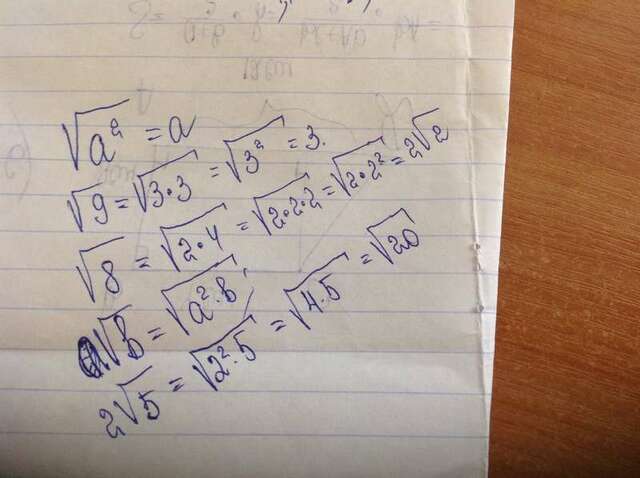 √a² = a
√9 = √3·3 = √3² = 3.
√8 = √2·4 = √2·2·2 = √2·2² = 2√2
a√b = √a²·b
2√5 = √2²·5 = √4·5 = √20